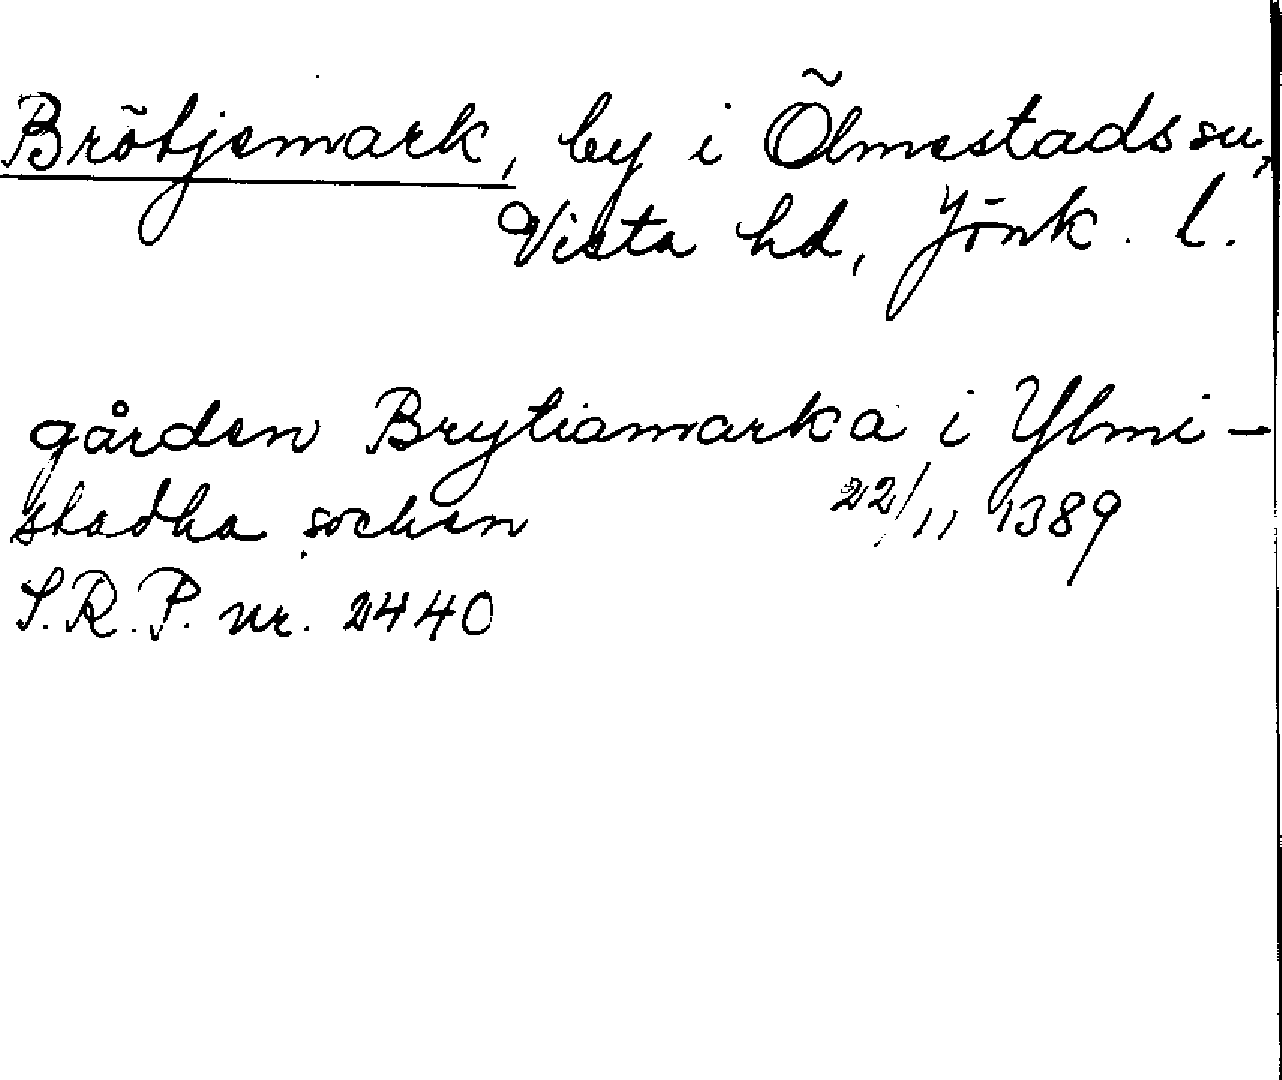 Brötjemark, by i Ölmestads sn,
Vista hd, Jönk. l.
gården Brytiamarka i Ylmi-
stadha socken 22/11 1389
S.R.P. nr. 2440